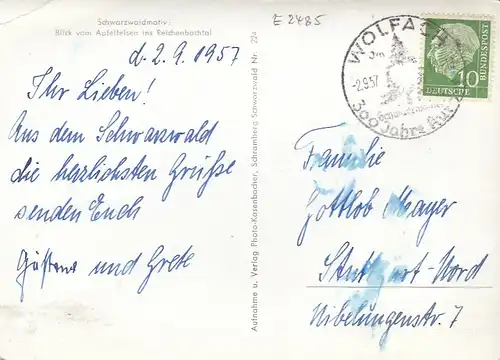 Schwarzwaldmotiv:
Blick vom Apfelfelsen ins Reichenbachtal
E 2485
d. 2.9.1957
Ihr Lieben!
Aus dem Schwarzwald
die herzlichsten Grüße
senden Euch
und Grete
Aufnahme u. Verlag Photo-Kasenbacher, Schramberg Schwarzwald Nr. 224
WOLFACH
Im
-2.9.57
300 Jahre
DEUTSCHE BUNDESPOST
10
Familie
Gottlob Mayer
Stuttgart-Nord
Nibelungenstr. 7